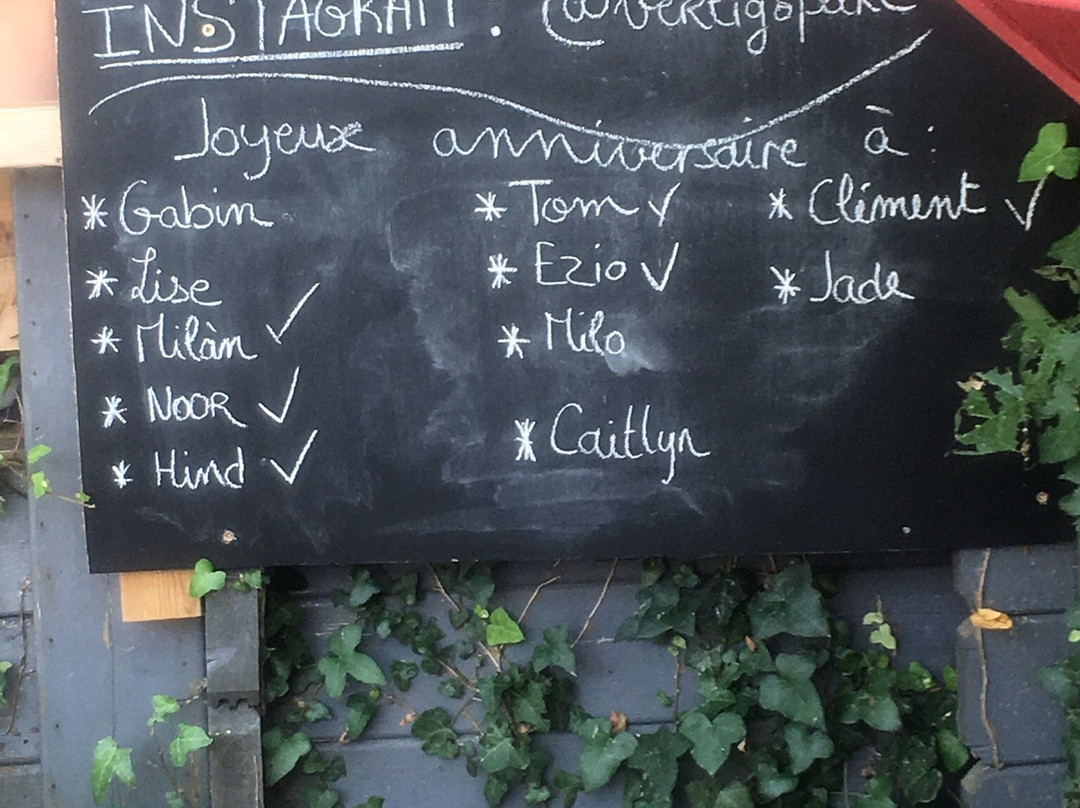 INSTAGRAM : @vertigoparc
Joyeux anniversaire à :
* Gabin
* Lise
* Milàn ✓
* NOOR ✓
* Hind ✓
* Tom ✓
* Ezio ✓
* Milo
* Caitlyn
* Clément ✓
* Jade